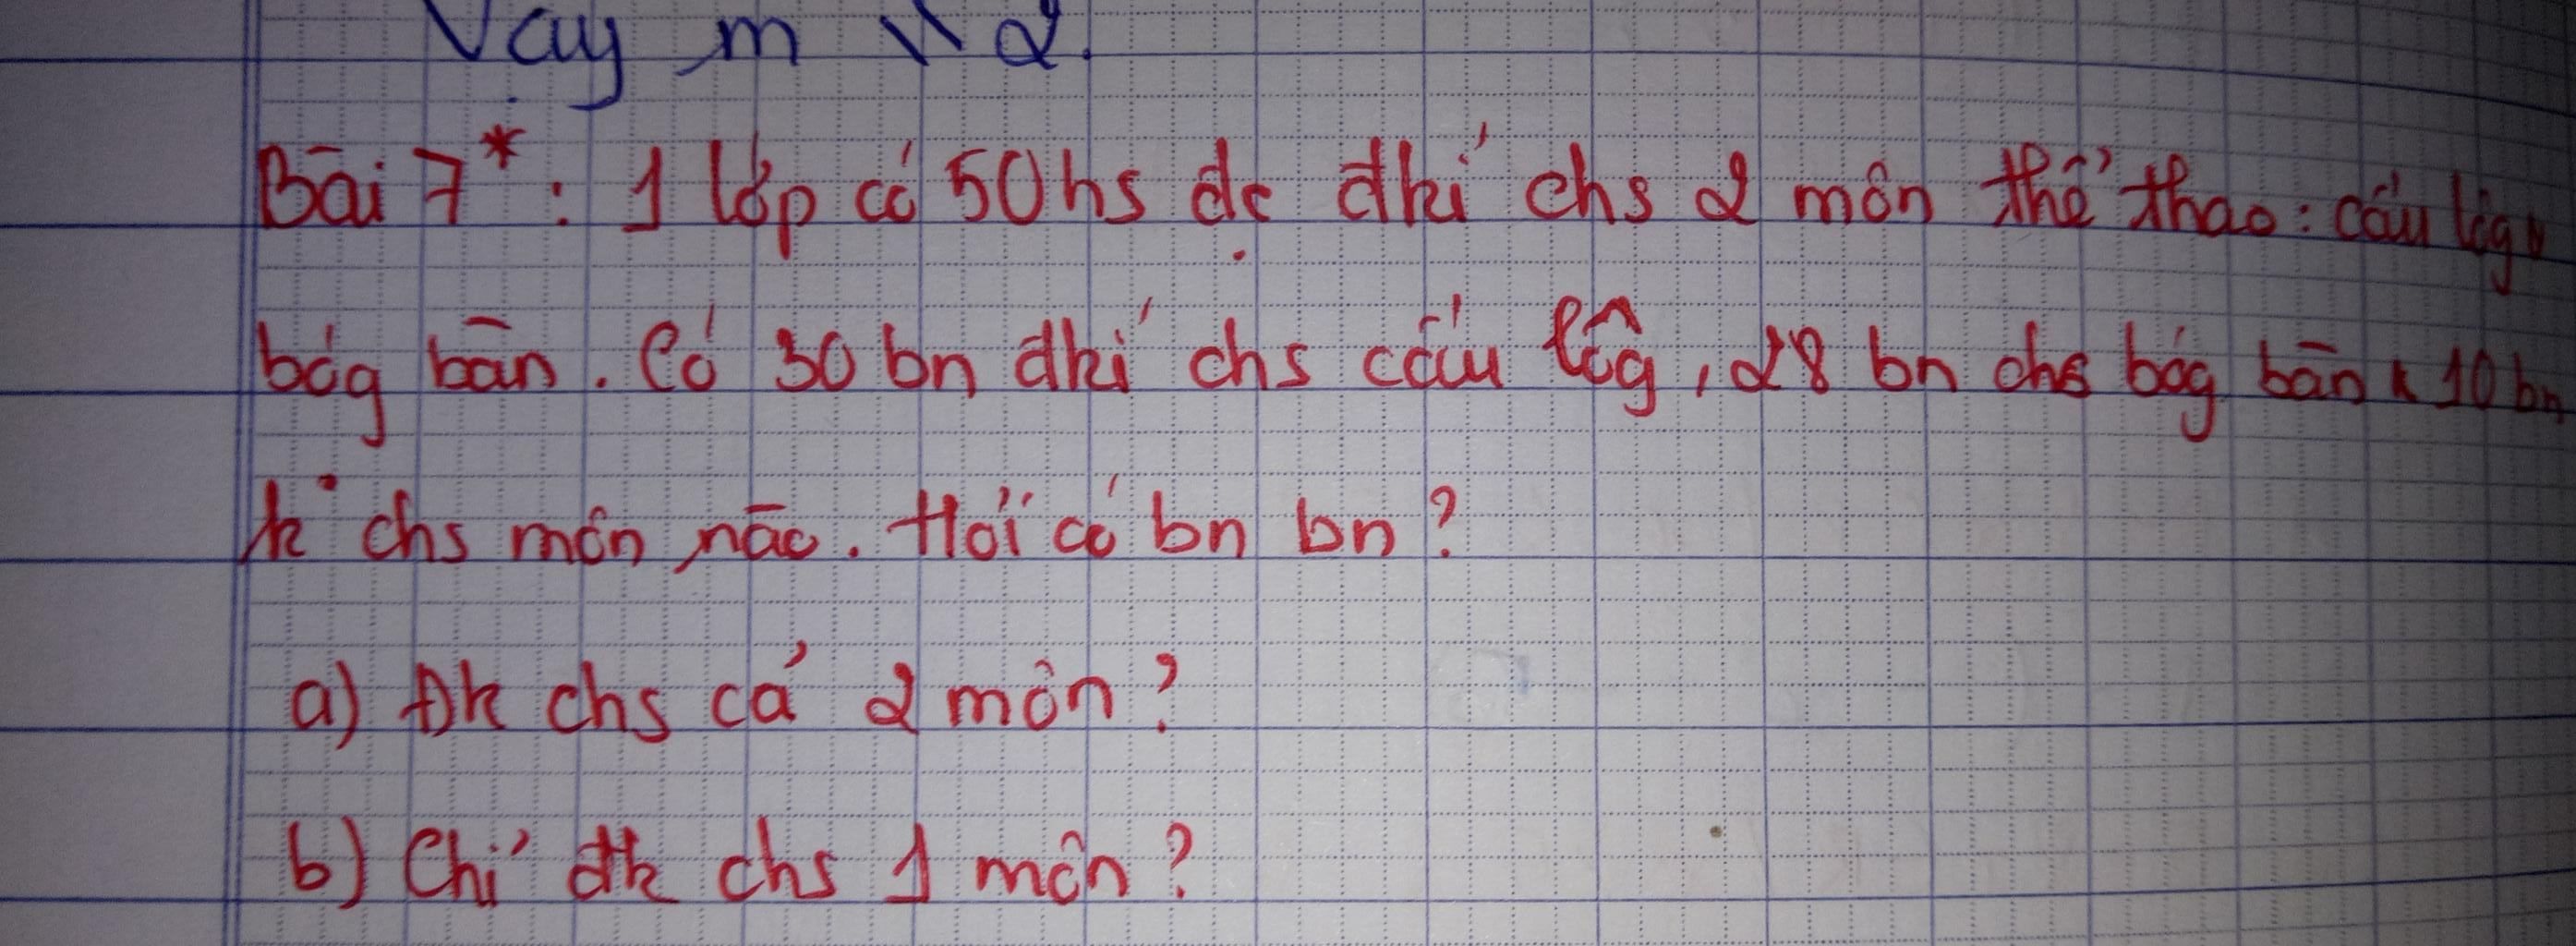 Vậy m \\ 2.
Bài 7*: 1 lớp có 50 hs đc đkí chs 2 môn thể thao: cầu lôg
bóg bàn. Có 30 bn đkí chs cầu lôg, 28 bn chs bóg bàn & 10 bn
k° chs môn nào. Hỏi có bn bn?
a) Đk chs cả 2 môn?
b) Chỉ đk chs 1 môn?